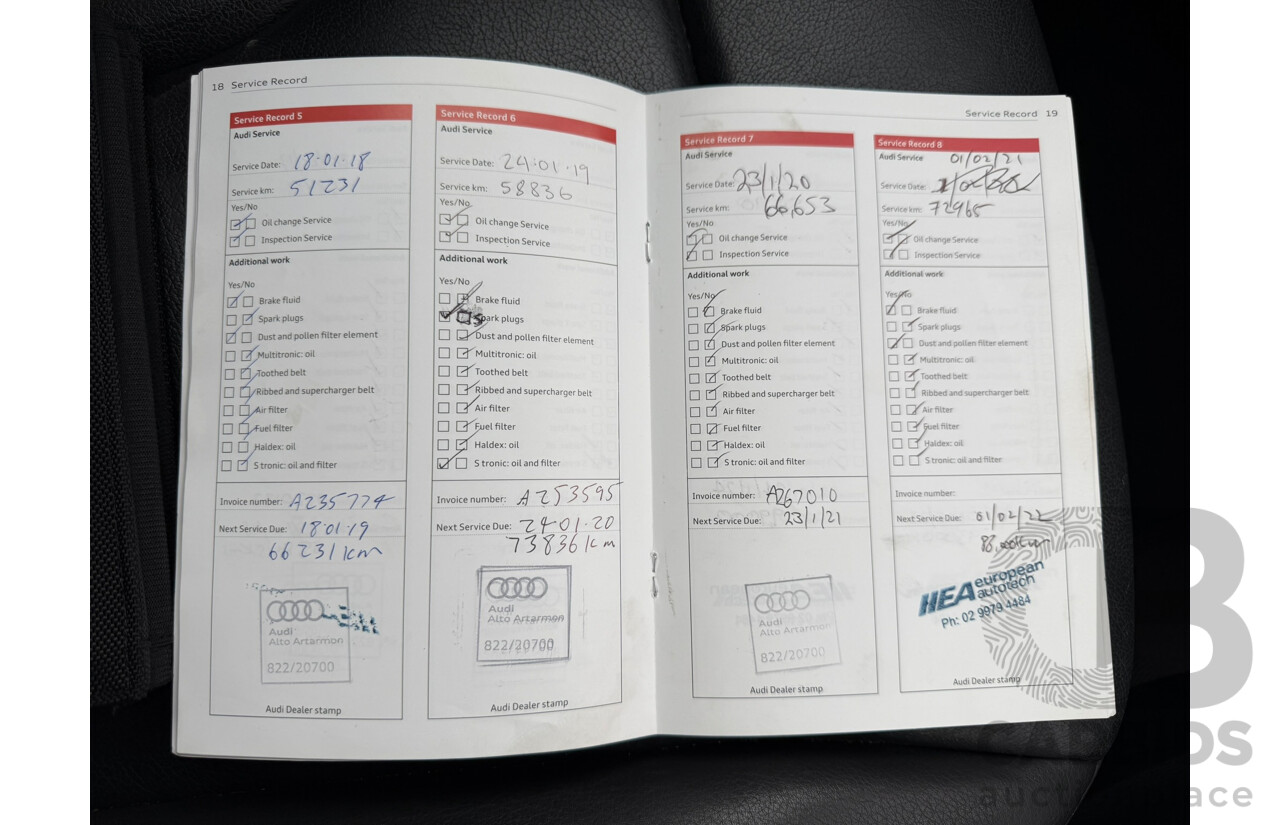 18 Service Record
Service Record 5
Audi Service
Service Date: 18·01·18
Service km: 51231
Yes/No
Oil change Service
Inspection Service
Additional work
Yes/No
Brake fluid
Spark plugs
Dust and pollen filter element
Multitronic: oil
Toothed belt
Ribbed and supercharger belt
Air filter
Fuel filter
Haldex: oil
S tronic: oil and filter
Invoice number: A235774
Next Service Due: 18·01·19
66231km
Audi
Alto Artarmon
822/20700
Audi Dealer stamp
Service Record 6
Audi Service
Service Date: 24·01·19
Service km: 58836
Yes/No
Oil change Service
Inspection Service
Additional work
Yes/No
Brake fluid
Spark plugs
Dust and pollen filter element
Multitronic: oil
Toothed belt
Ribbed and supercharger belt
Air filter
Fuel filter
Haldex: oil
S tronic: oil and filter
Invoice number: A253595
Next Service Due: 24·01·20
73836km
Audi
Alto Artarmon
822/20700
Audi Dealer stamp
Service Record 19
Service Record 7
Audi Service
Service Date: 23/1/20
Service km: 66,653
Yes/No
Oil change Service
Inspection Service
Additional work
Yes/No
Brake fluid
Spark plugs
Dust and pollen filter element
Multitronic: oil
Toothed belt
Ribbed and supercharger belt
Air filter
Fuel filter
Haldex: oil
S tronic: oil and filter
Invoice number: A267010
Next Service Due: 23/1/21
Audi
Alto Artarmon
822/20700
Audi Dealer stamp
Service Record 8
Audi Service 01/02/21
Service Date:
Service km: 72965
Yes/No
Oil change Service
Inspection Service
Additional work
Yes/No
Brake fluid
Spark plugs
Dust and pollen filter element
Multitronic: oil
Toothed belt
Ribbed and supercharger belt
Air filter
Fuel filter
Haldex: oil
S tronic: oil and filter
Invoice number:
Next Service Due: 01/02/22
HEA european
autotech
Ph: 02 9979 4484
Audi Dealer stamp